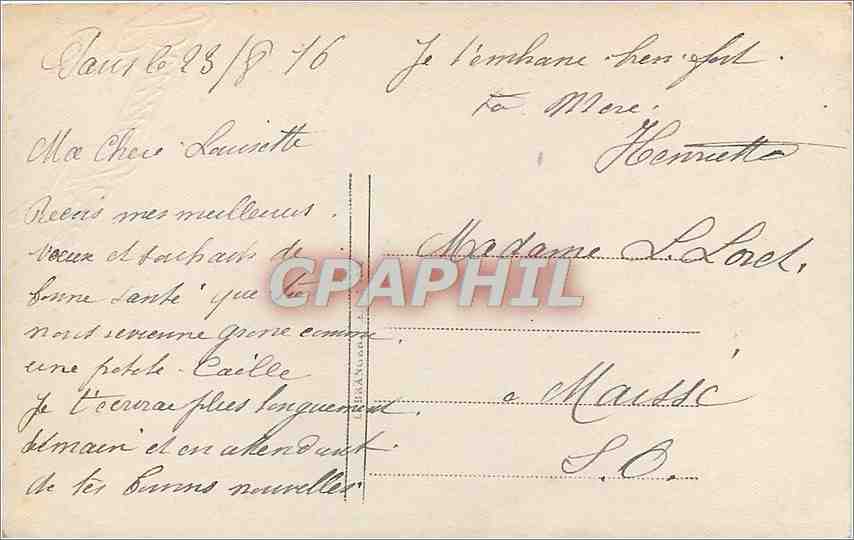 Paris le 23/8 16
Ma Chere Louisette
Reçois mes meilleurs
vœux et souhaits de
bonne santé que tu
nous revienne grosse comme
une petite Caille
Je t'ecrirai plus longuement
demain et en attendant
de tes bonnes nouvelles
Je t'embrasse bien fort
ta Mere
Henriette
Madame L. Loret.
a Maisse
S. O.
CPAPHIL